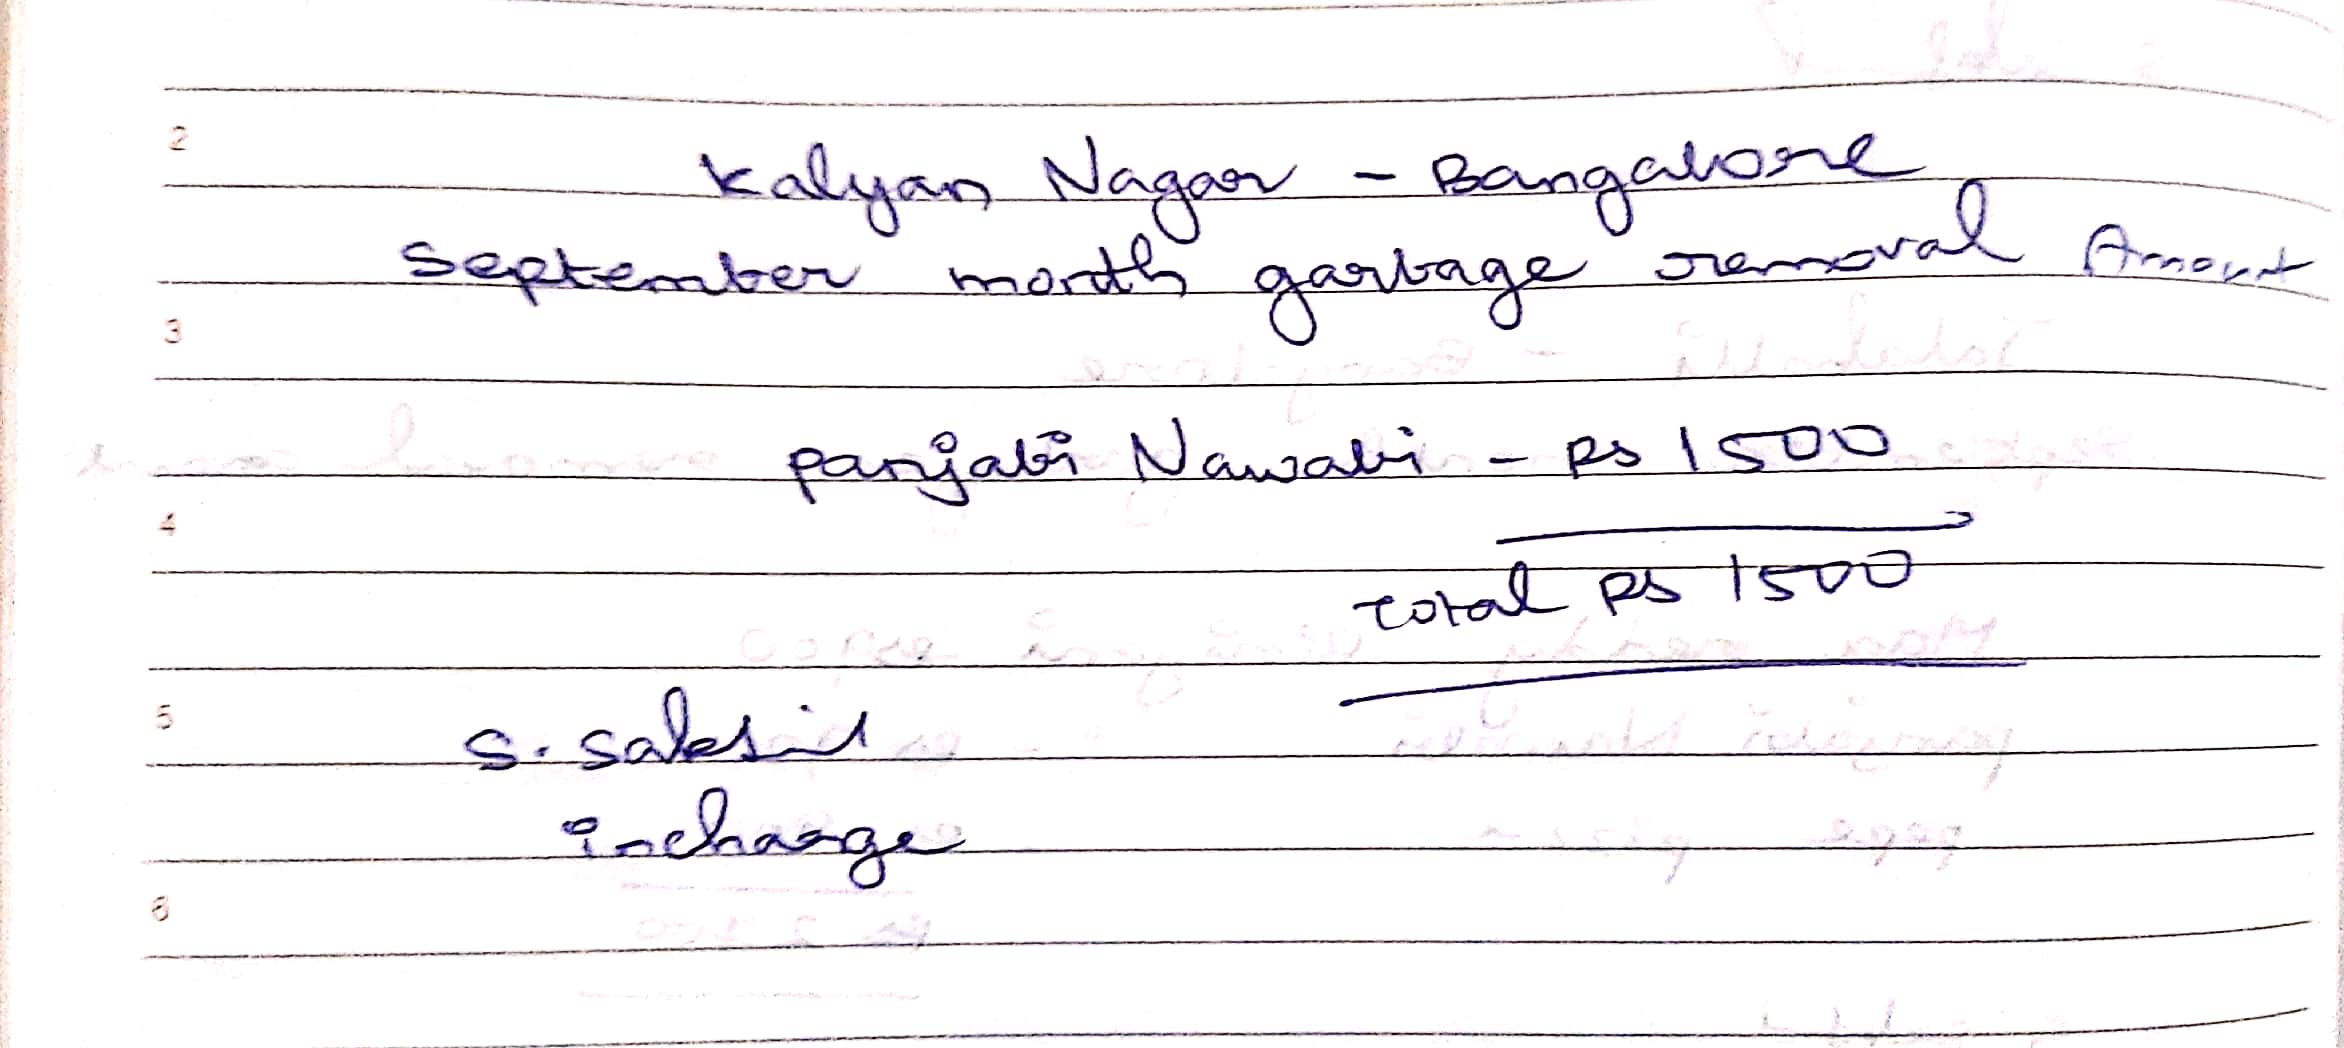 2
Kalyan Nagar - Bangalore
September month garbage removal Amount
3
panjabi Nawabi - Rs 1500
4
total Rs 1500
5
S.
incharge
6